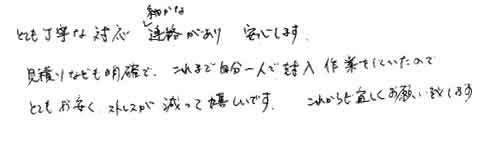 とても丁寧な対応 細かな連絡があり 安心します。
見積りなども明確で、これまで自分一人で封入作業をしていたので
とてもお安く、ストレスが減って嬉しいです。 これからも宜しくお願い致します